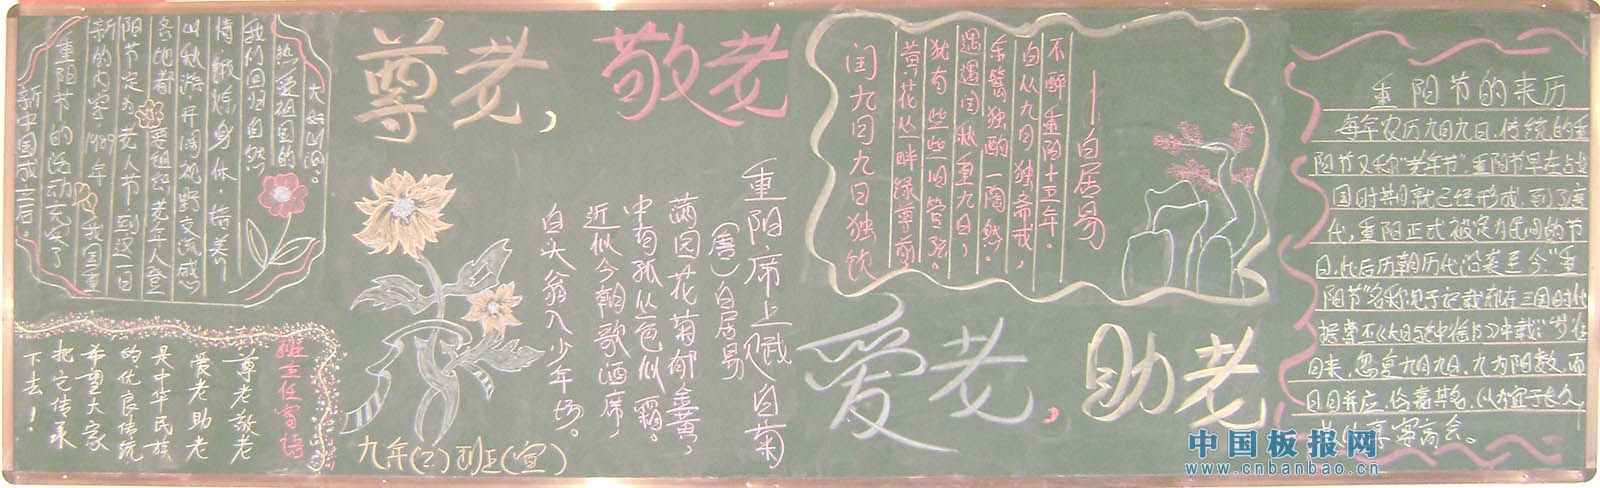 新中国成立后。
重阳节的活动充实了
新的内容1989年,我国重
阳节定为老人节,到这一日
各地都要组织老年人登
山秋游,开阔视野,交流感
情,锻炼身体,培养
我们回归自然
热爱祖国的
大好山河。
班主任寄语
尊老敬老
爱老助老
是中华民族
的优良传统
希望大家
把它传承
下去!
尊老,敬老
重阳席上赋白菊
(唐)白居易
满园花菊郁金黄,
中有孤丛色似霜。
近似今朝歌酒席,
白头翁入少年场。
九年(2)班(宣)
闰九日九日独饮
黄花丛畔绿尊前
犹有些些旧管弦。
遇闰秋重九日,
东篱独酌一陶然。
自从九月斋戒,
不醉重阳十五年。
——白居易
爱老,助老
重阳节的来历
每年农历九月九日,传统的重
阳节又称"老年节",重阳节早在战
国时期就已经形成,到了唐
代,重阳正式被定为民间的节
日,此后历朝历代沿袭至今."重
阳节"名称见于记载却在三国时代
据曹丕《九日与钟繇书》中载:"岁往
月来,忽复九月九日,九为阳数,而
日月并应,俗嘉其名,以为宜于长久,
故以享宴高会。
中国板报网
www.cnbanbao.cn